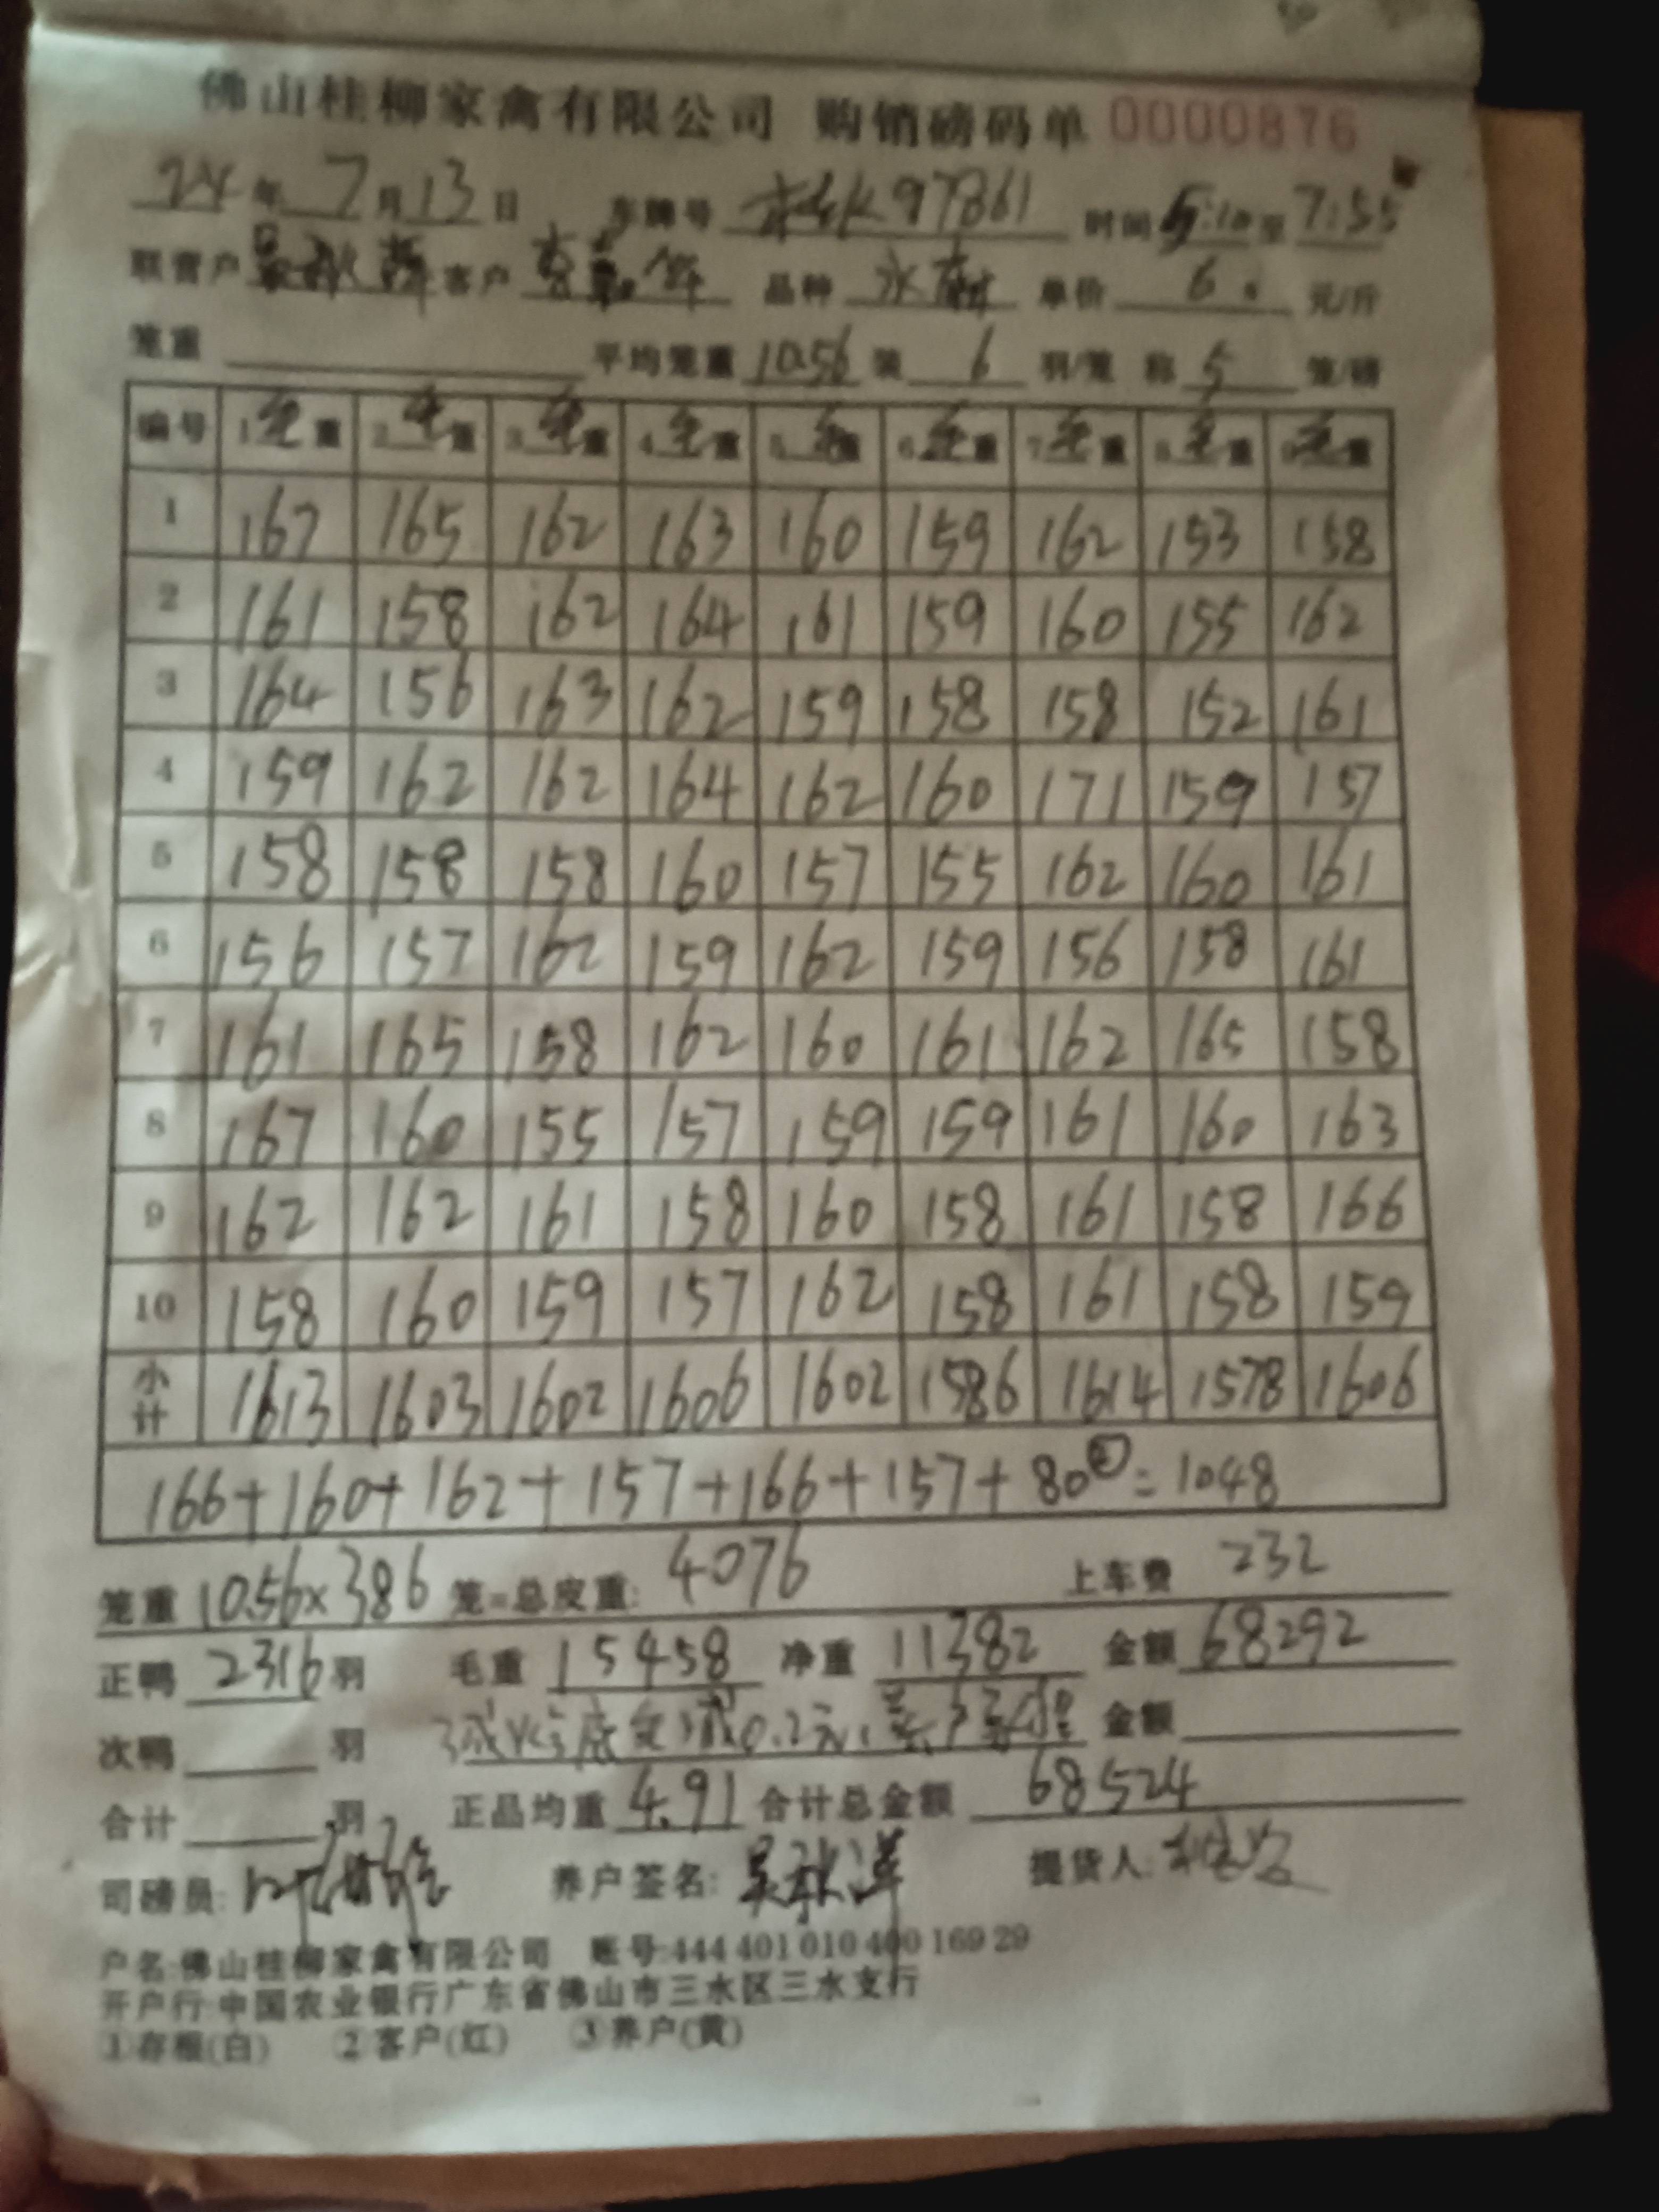 佛山桂柳家禽有限公司 购销磅码单 0000876
24年 7月13日 车牌号 桂K97861 时间 5:10至7:55
联营户 吴秋萍 客户 品种 水麻 单价 6. 元/斤
笼重 平均笼重 10.56 装 6 羽/笼 称 5 笼/磅
编号 1毛重 2毛重 3毛重 4毛重 5毛重 6毛重 7毛重 8毛重 9毛重
1 167 165 162 163 160 159 162 153 158
2 161 158 162 164 161 159 160 155 162
3 164 156 163 162 159 158 158 152 161
4 159 162 162 164 162 160 171 159 157
5 158 158 158 160 157 155 162 160 161
6 156 157 162 159 162 159 156 158 161
7 161 165 158 162 160 161 162 165 158
8 167 160 155 157 159 159 161 160 163
9 162 162 161 158 160 158 161 158 166
10 158 160 159 157 162 158 161 158 159
小计 1613 1603 1602 1606 1602 1586 1614 1578 1606
166+160+162+157+166+157+80=1048
笼重 10.56×386 笼=总皮重: 4076 上车费 232
正鸭 2316 羽 毛重 15458 净重 11382 金额 68292
次鸭 羽 减0.2元 金额
合计 羽 正品均重 4.91 合计总金额 68524
司磅员: 养户签名: 吴秋萍 提货人:
户名:佛山桂柳家禽有限公司 账号:444 401 010 400 169 29
开户行:中国农业银行广东省佛山市三水区三水支行
①存根(白) ②客户(红) ③养户(黄)